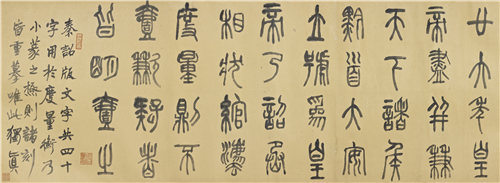 廿六年皇
帝盡并兼
天下諸侯
黔首大安
立號為皇
帝乃詔丞
相狀綰灋
度量則不
壹歉疑者
皆明壹之
秦詔版文字共四十
字用於度量衡乃
小篆之極則諸刻
皆重摹唯此獨眞